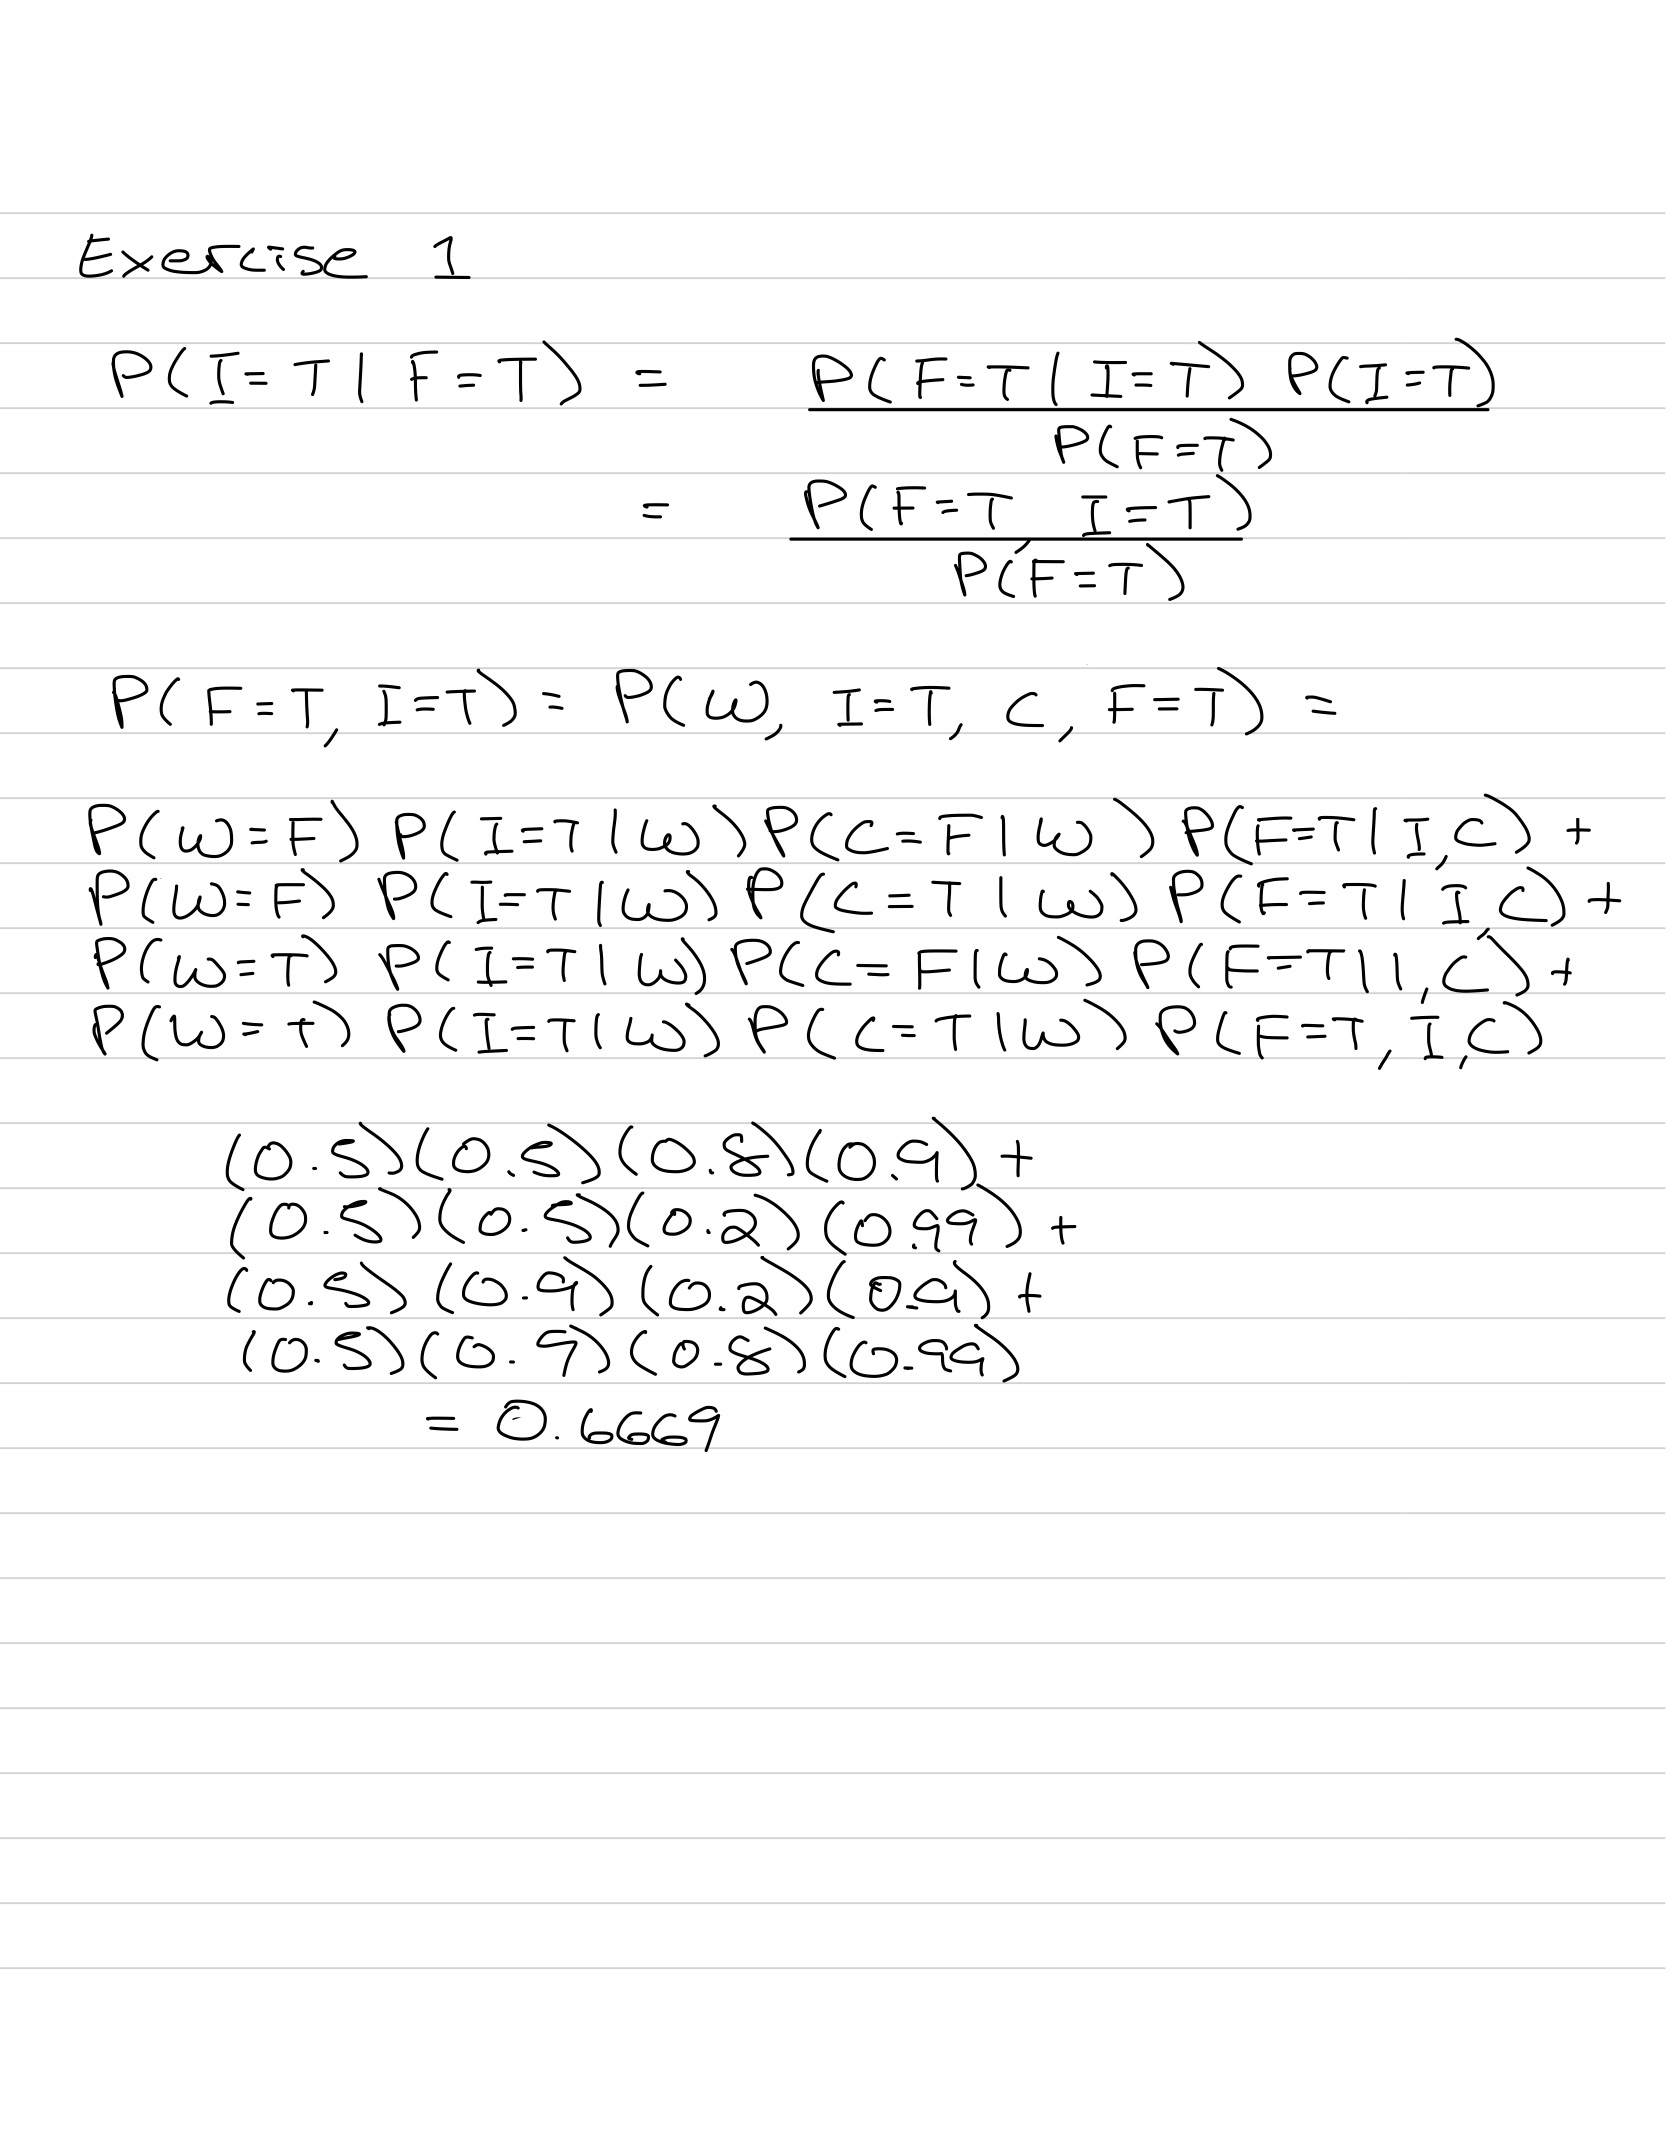 Exercise 1
P(I=T | F=T) = P(F=T | I=T) P(I=T)
P(F=T)
= P(F=T, I=T)
P(F=T)
P(F=T, I=T) = P(W, I=T, C, F=T) =
P(W=F) P(I=T|W) P(C=F|W) P(F=T|I,C) +
P(W=F) P(I=T|W) P(C=T|W) P(F=T|I,C) +
P(W=T) P(I=T|W) P(C=F|W) P(F=T|I,C) +
P(W=T) P(I=T|W) P(C=T|W) P(F=T,I,C)
(0.5)(0.5)(0.8)(0.9) +
(0.5)(0.5)(0.2)(0.99) +
(0.5)(0.9)(0.2)(0.9) +
(0.5)(0.9)(0.8)(0.99)
= 0.6669